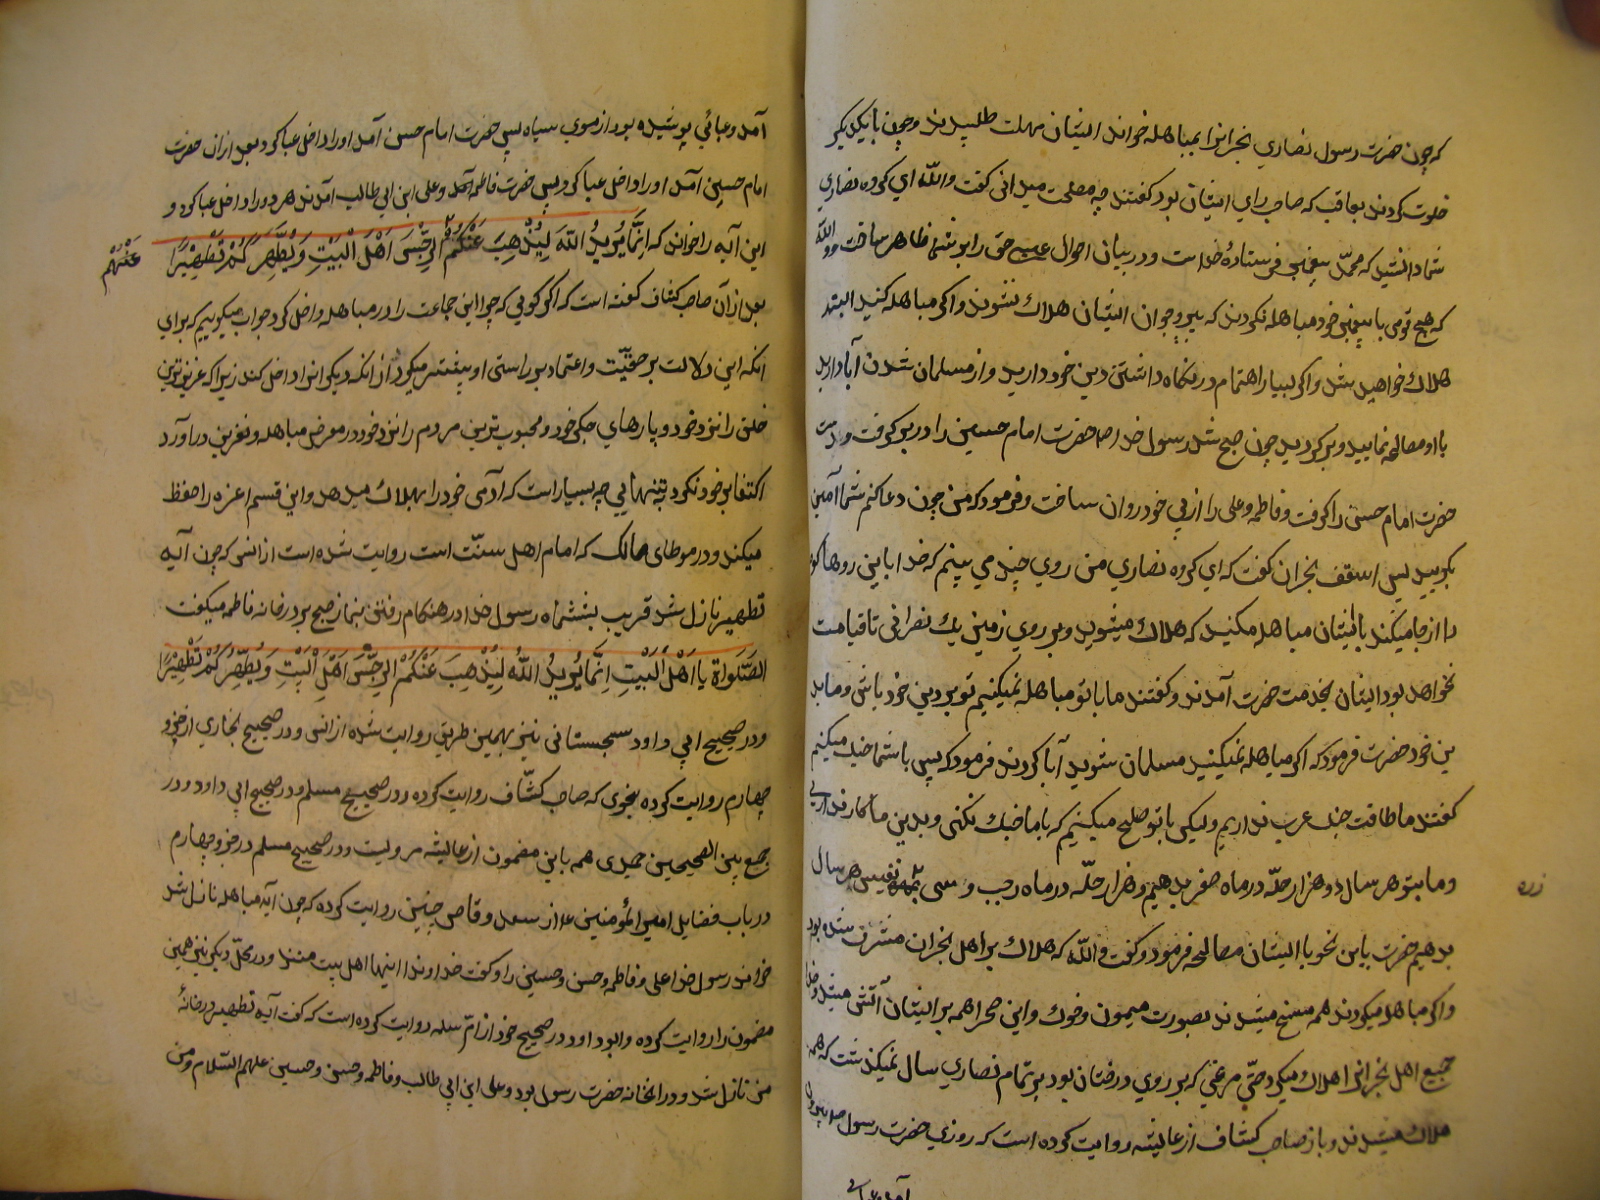 که چون حضرت رسول نصاری نجرانرا بمباهله خواند ایشان مهلت طلبیدند و چون با یکدیگر
خلوت کردند بعاقب که صاحب رای ایشان بود گفتند چه مصلحت میدانی گفت والله ای گروه نصاری
شما دانستید که محمّد پیغمبر فرستادهٔ خداست و در بیان احوال عیسی حق را بر شما ظاهر ساخت والله
که هیچ قومی با پیغمبر خود مباهله نکردند که پیر و جوان ایشان هلاک نشوند و اگر مباهله کنید البته
هلاک خواهید شد و اگر بسیار اهتمام در نگاه داشتن دین خود دارید و از مسلمان شدن آبا دارید
با او مصالحه نمایید و برگردید چون صبح شد رسول خدا ص حضرت امام حسین را در بر گرفت و دست
حضرت امام حسن را گرفت و فاطمه و علی را از پی خود روان ساخت و فرمود که من چون دعا کنم شما آمین
بگویید پس اسقف نجران گفت که ای گروه نصاری من روی چند می بینم که خدا باین روها کوه
را از جا میکند با ایشان مباهله مکنید که هلاک میشوید و بر روی زمین یک نصرانی تا قیامت
نخواهد بود ایشان بخدمت حضرت آمدند و گفتند ما با تو مباهله نمیکنیم تو بر دین خود باش و ما بد
ین خود حضرت فرمود که اگر مباهله نمیکنید مسلمان شوید آبا کردند فرمود که پس با شما جنک میکنم
گفتند ما طاقت جنک عرب نداریم ولیکن با تو صلح میکنیم که با ما جنک نکنی و بدین ما کار نداری
و ما بتو هر سال دو هزار حلّه در ماه صفر بدهیم و هزار حلّه در ماه رجب و سی نفیس هر سال
زره
بدهیم حضرت باین نحو با ایشان مصالحه فرمود و گفت والله که هلاک بر اهل نجران مشرف شده بود
و اگر مباهله میکردند همه مسخ میشدند بصورت میمون و خوک و این صحرا همه بر ایشان آتش میشد و خدا
جمیع اهل نجران را هلاک میکرد حتّی مرغی که بر روی درختان بود بر تمام نصاری سال نمیکذشت که همه
هلاک میشدند و باز صاحب کشاف از عایشه روایت کرده است که روزی حضرت رسول ص بیرون
آمد و عبائی
آمد و عبائی پوشیده بود از موی سیاه پس حضرت امام حسن آمد او را داخل عبا کرد بعد از ان حضرت
امام حسین آمد او را داخل عبا کرد پس حضرت فاطمه آمد و علی ابن ابی طالب آمدند هر دو را داخل عبا کرد و
این آیه را خواند که اِنَّمَا یُرِیدُ اللّهَ لِیُذْهِبَ عَنْکُمُ الرِّجْسَ اَهْلَ الْبَیْتِ وَیُطَهِّرَکُمْ تَطْهِیْرًا
عَنْهُمْ
بعد از آن صاحب کشاف گفته است که اگر گویی که چرا این جماعت را در مباهله داخل کرد جواب میگوییم که برای
انکه این دلالت بر حقیّت و اعتماد بر راستی او بیشتر میکرد از انکه دیگرانرا داخل کند زیرا که عزیزترین
خلق را نزد خود و پارهای جگر خود و محبوب ترین مردم را نزد خود در معرض مباهله و نفرین درآورد
اکتفا بر خود نکرد بتنهایی چه بسیار است که آدمی خود را بهلاک میدهد و این قسم اعزه را حفظ
میکند و در موطای مالک که امام اهل سنّت است روایت شده است از انس که چون آیه
تطهیر نازل شد قریب بششماه رسول خدا در هنکام رفتن بنماز صبح بر در خانه فاطمه میگفت
الصَّلَواة یا اَهْلَ الْبَیْتِ اِنَّمَا یُرِیدُ اللّهُ لِیُذْهِبَ عَنْکُمُ الرِّجْسَ اَهْلَ الْبَیْتِ وَیُطَهِّرَکُمْ تَطْهِیْرًا
و در صحیح ابی داود سجستانی نیز بهمین طریق روایت شده از انس و در صحیح بخاری از جزو
چهارم روایت کرده بنحوی که صاحب کشّاف روایت کرده و در صحیح مسلم و در صحیح ابی داود و در
جمع بین الصحیحین حمیدی هم باین مضمون از عایشه مرویست و در صحیح مسلم در جزو چهارم
در باب فضایل امیرالمؤمنین ع از سعد وقاص چنین روایت کرده که چون آیه مباهله نازل شد
خواند رسول خدا علی و فاطمه و حسن و حسین را و گفت خداوندا اینها اهل بیت منند و در محلّ دیگر نیز همین
مضمون را روایت کرده و ابو داود در صحیح خود از امّ سلمه روایت کرده است که گفت آیه تطهیر در خانهٔ
من نازل شد و در انخانه حضرت رسول بود و علی ابن ابی طالب و فاطمه و حسن و حسین علیهم السّلام و من